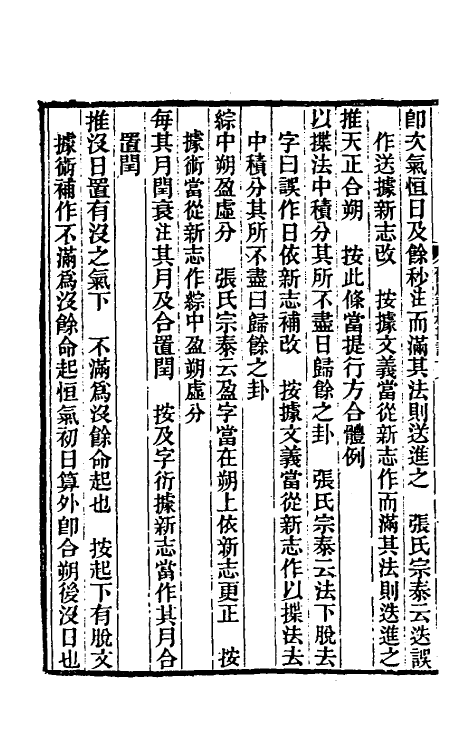 卽次氣恒日及餘秒注而滿其法則送進之　張氏宗泰云迭誤
作送據新志改　按據文義當從新志作而滿其法則迭進之
推天正合朔　按此條當提行方合體例
以揲法中積分其所不盡日歸餘之卦　張氏宗泰云法下脫去
字曰誤作日依新志補改　按據文義當從新志作以揲法去
中積分其所不盡曰歸餘之卦
綜中朔盈虛分　張氏宗泰云盈字當在朔上依新志更正　按
據術當從新志作綜中盈朔虛分
每其月閏衰注其月及合置閏　按及字衍據新志當作其月合
置閏
推沒日置有沒之氣下　不滿爲沒餘命起也　按起下有脫文
據術補作不滿爲沒餘命起恒氣初日算外卽合朔後沒日也